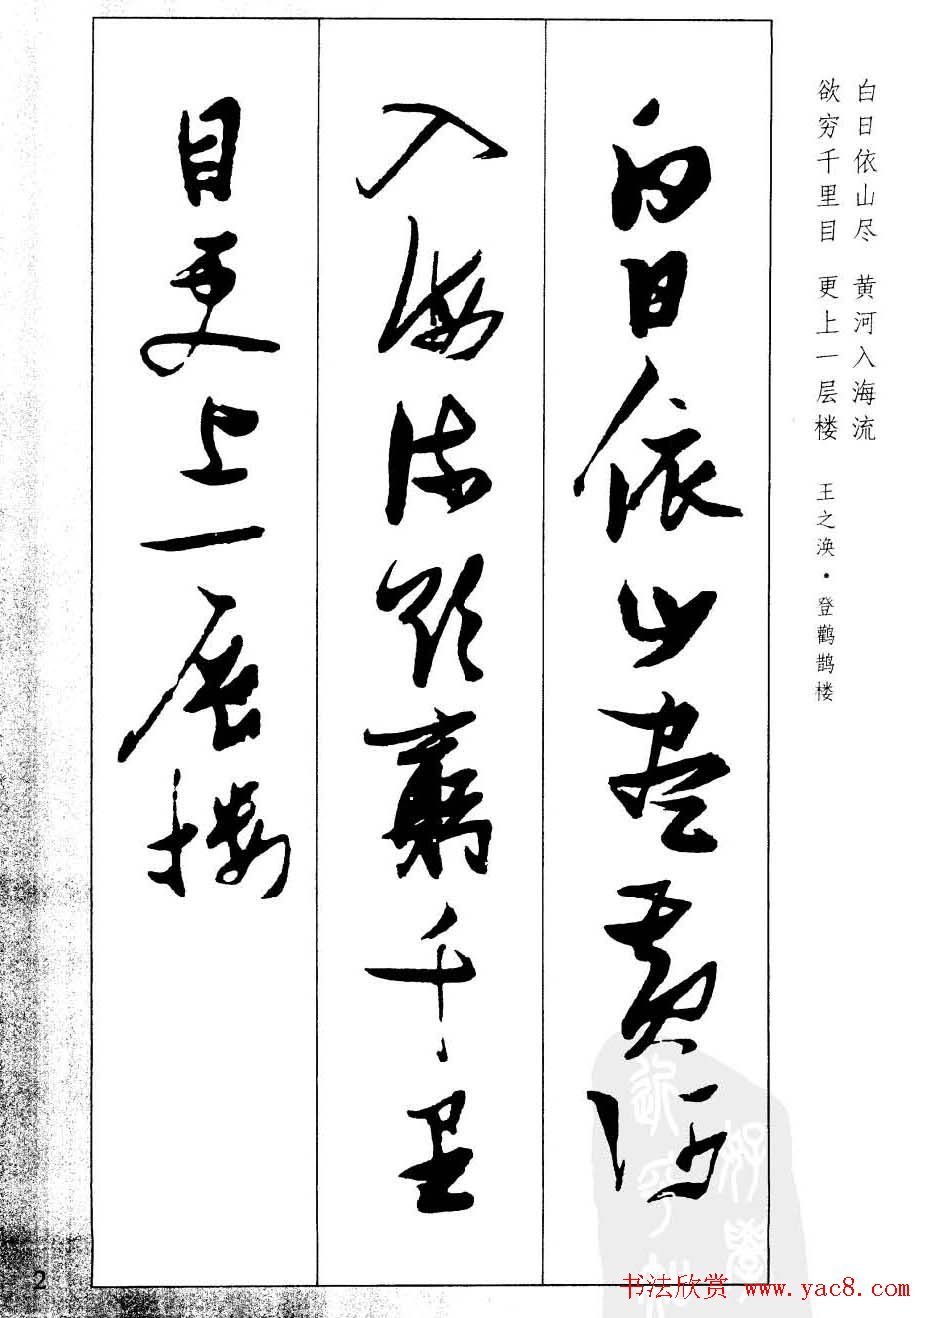 白日依山尽 黄河入海流
欲穷千里目 更上一层楼 王之涣·登鹳鹊楼
白日依山盡黄河
入海流欲窮千里
目更上一层楼
2
书法欣赏 www.yac8.com